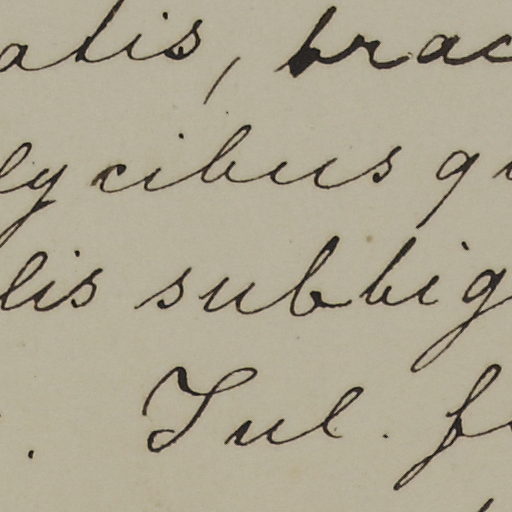 atis, brac
lycibus qu
lis subbig
. Jul. f